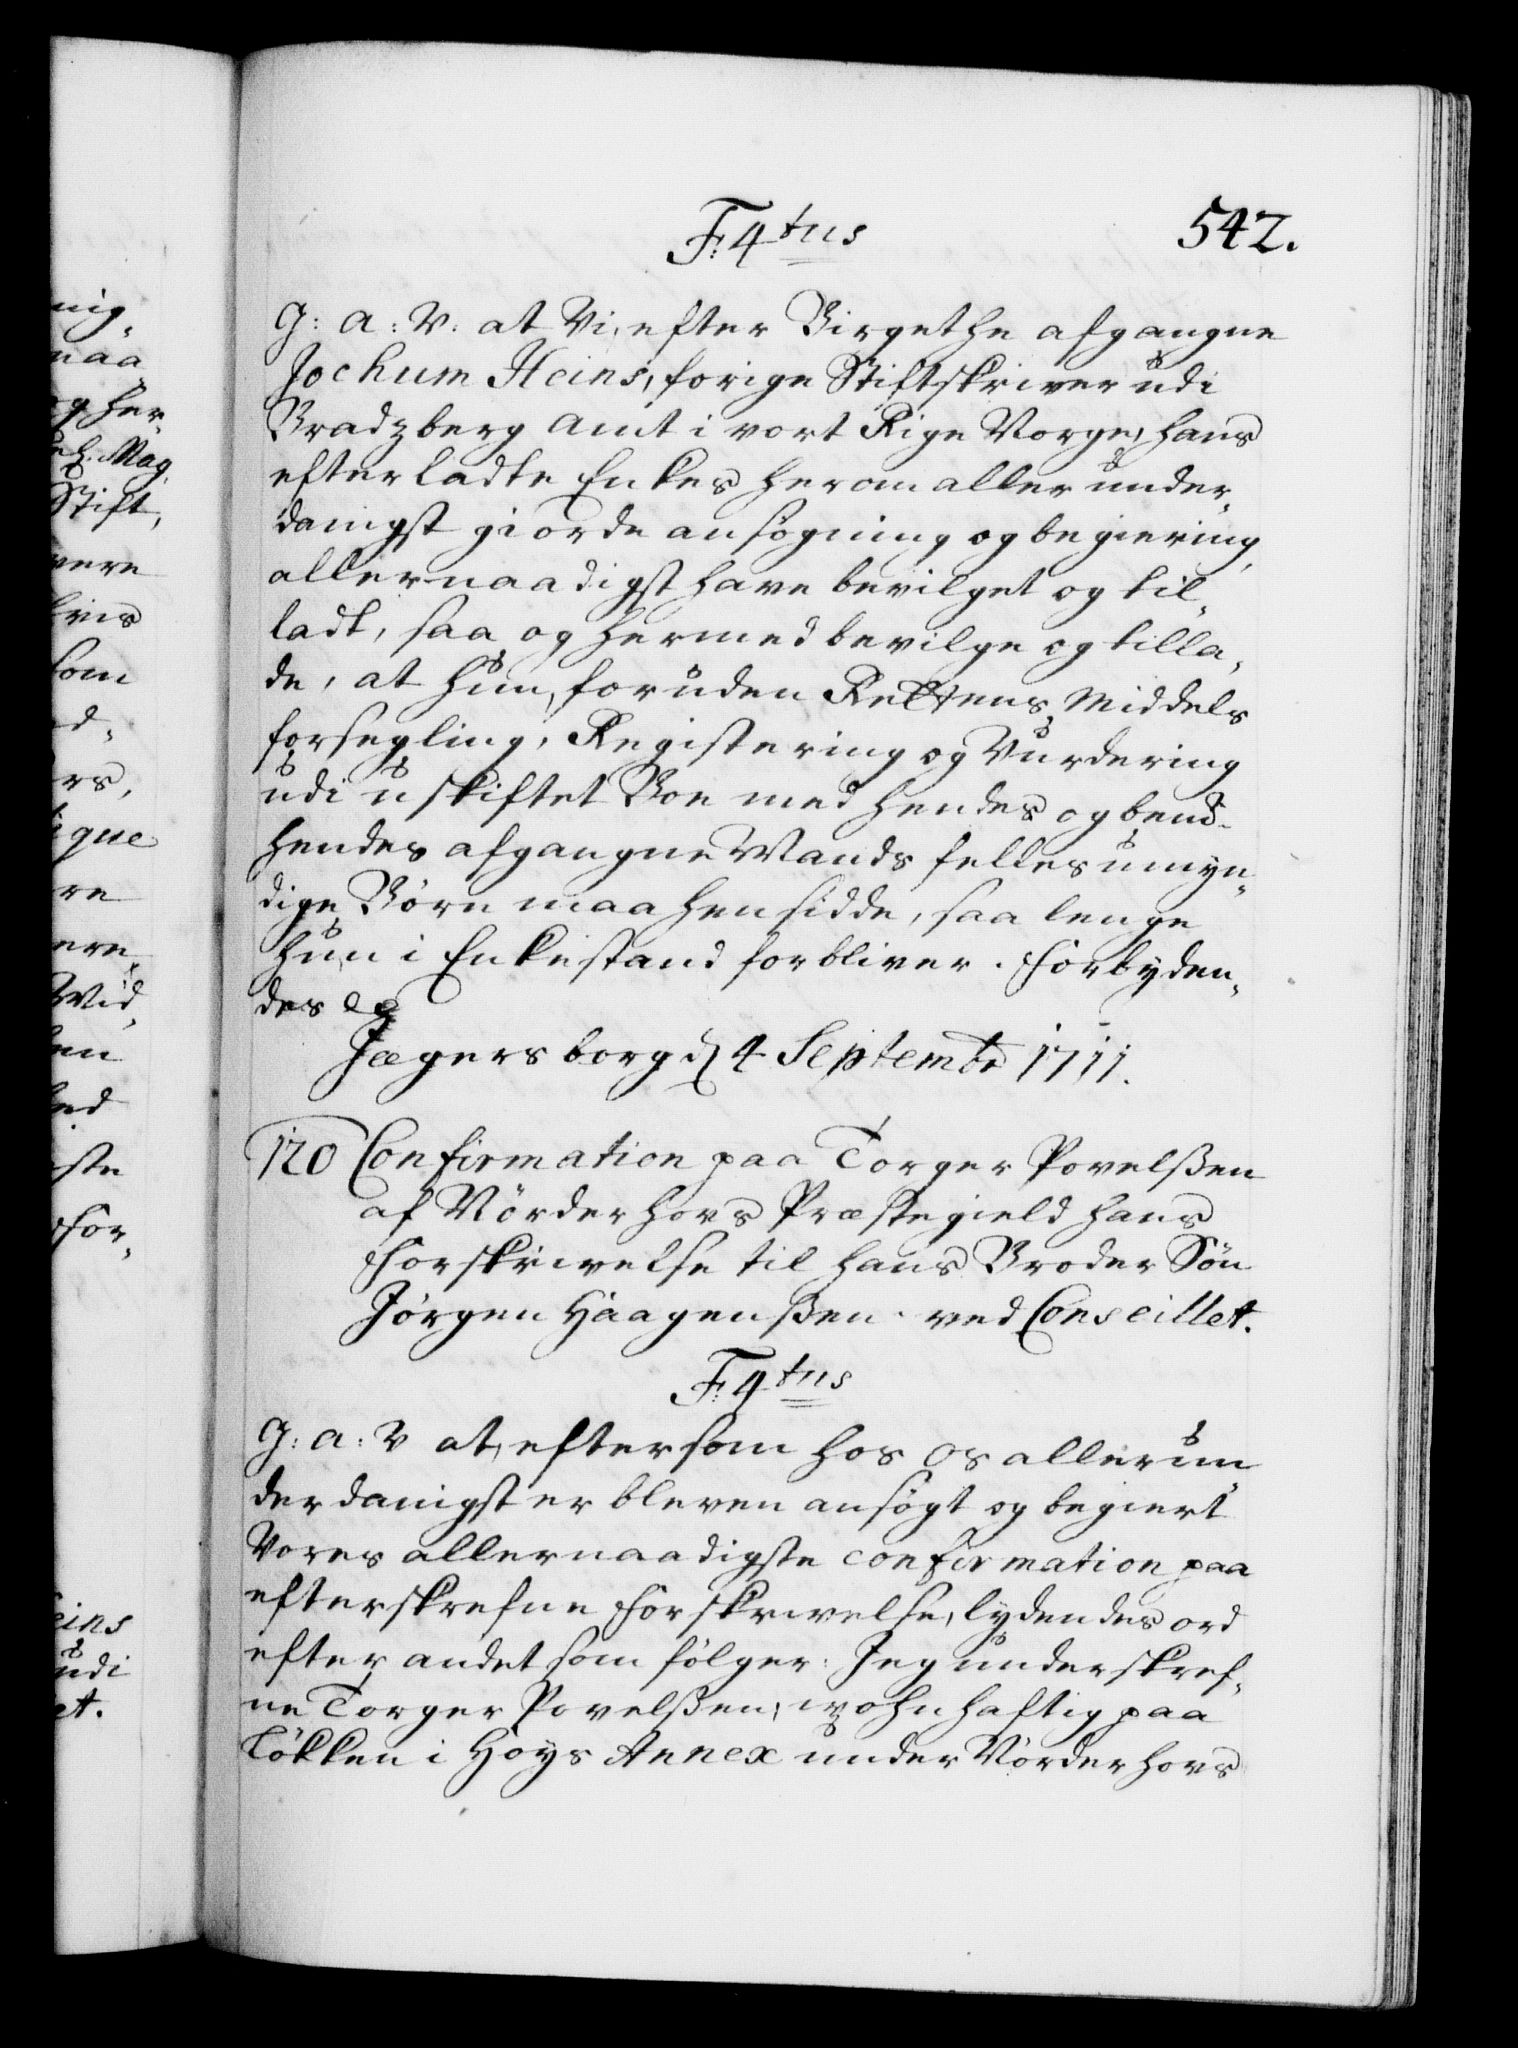 542.
F: 4tus
G: a: V: at Vi, efter Birgethe afgangne
Jochum Heins, forige Stiftskriver udi
Bradzberg Amt i vort Rige Norge, hans
efterladte Enkes herom aller under,,
danigst giorde ansøgning og begiering,
allernaadigst have bevilget og til,,
ladt, saa og hermed bevilge og tilla,,
de, at hun, foruden Rettens Middels
forsegling, Registering og Vurdering
udi uskiftet Boe med hendes og bem.t
hendes afgangne Mands felles umyn,,
dige Børn maa hensidde, saa lenge
hun i Enkestand forbliver. Forbyden,,
des etc
Jægersborg d 4 Septembr 1711.
120 Confirmation paa Torger Povelßen
af Nörderhovs Præstegield hans
Forskrivelse til hans Broder Sön
Jörgen Haagenßen. ved Conseillet.
F: 4tus
G: a: V at, eftersom hos os allerun
derdanigst er bleven ansøgt og begiert
Vores allernaadigste confirmation paa
efterskrefne Forskrivelse, lydendes ord
efter andet som følger: Jeg underskref,,
ne Torger Povelßen, wohnhaftig paa
Lökken i Höys Annex under Nörderhovs
nig,,
maa
og her,,
Mag,,
Stift,
vere
som
ers,
ique
re
ere
Wid,,
en
ste
For,,
eins
udi
et.